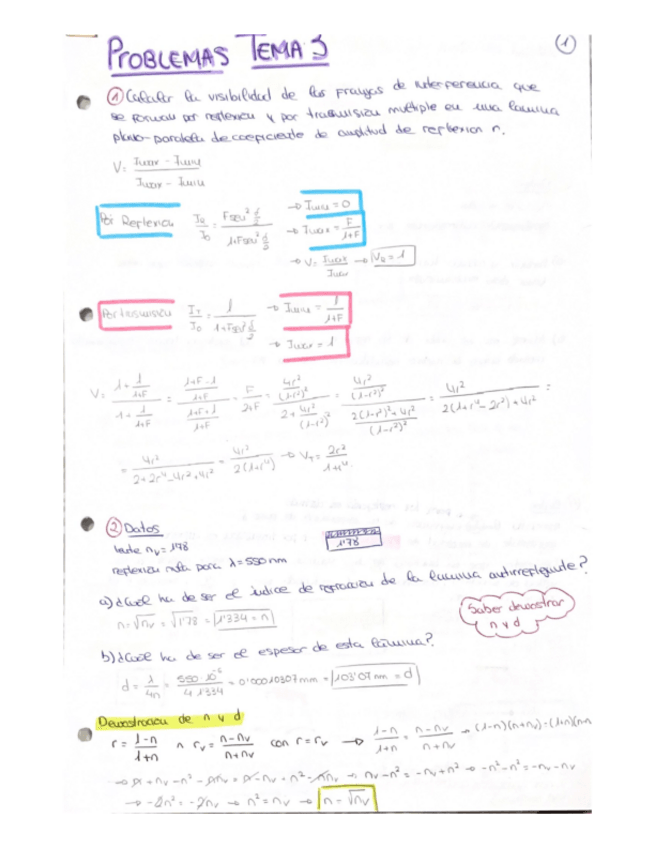 PROBLEMAS TEMA 3
(1)
① Calcular la visibilidad de las franjas de interferencia que
se forman por reflexión y por transmisión multiple en una lámina
plano-paralela de coeficiente de amplitud de reflexión r.
V = Imax - Imin / Imax - Imin
Por Reflexión I_R/I_0 = F sen² δ/2 / 1+F sen² δ/2 → Imin = 0
→ Imax = F/1+F
→ V = Imax/Imax → V_R = 1
Por transmisión I_T/I_0 = 1 / 1+F sen² δ/2 → Imin = 1/1+F
→ Imax = 1
V = 1+ 1/1+F / 1+ 1/1+F = 1+F-1/1+F / 1+F+1/1+F = F/2+F = 4r²/(1-r²)² / 2+ 4r²/(1-r²)² = 4r²/(1-r²)² / 2(1-r²)²+4r²/(1-r²)² = 4r² / 2(1+r⁴-2r²)+4r² =
= 4r² / 2+2r⁴-4r²+4r² = 4r² / 2(1+r⁴) → V_T = 2r² / 1+r⁴
② Datos
lente n_v = 1'78
1'78
reflexión nula para λ = 550 nm
a) ¿Cuál ha de ser el índice de refracción de la lámina antirreflejante?
n = √n_v = √1'78 = 1'334 = n
Saber demostrar
n y d
b) ¿Cuál ha de ser el espesor de esta lámina?
d = λ/4n = 550·10⁻⁶ / 4·1'334 = 0'00010307 mm = 103'07 nm = d
Demostración de n y d
r = 1-n/1+n n r_v = n-n_v/n+n_v con r = r_v → 1-n/1+n = n-n_v/n+n_v → (1-n)(n+n_v) = (1+n)(n-n
→ n + n_v - n² - n n_v = n - n_v + n² - n n_v → n_v - n² = -n_v + n² → -n² - n² = -n_v - n_v
→ -2n² = -2n_v → n² = n_v → n = √n_v